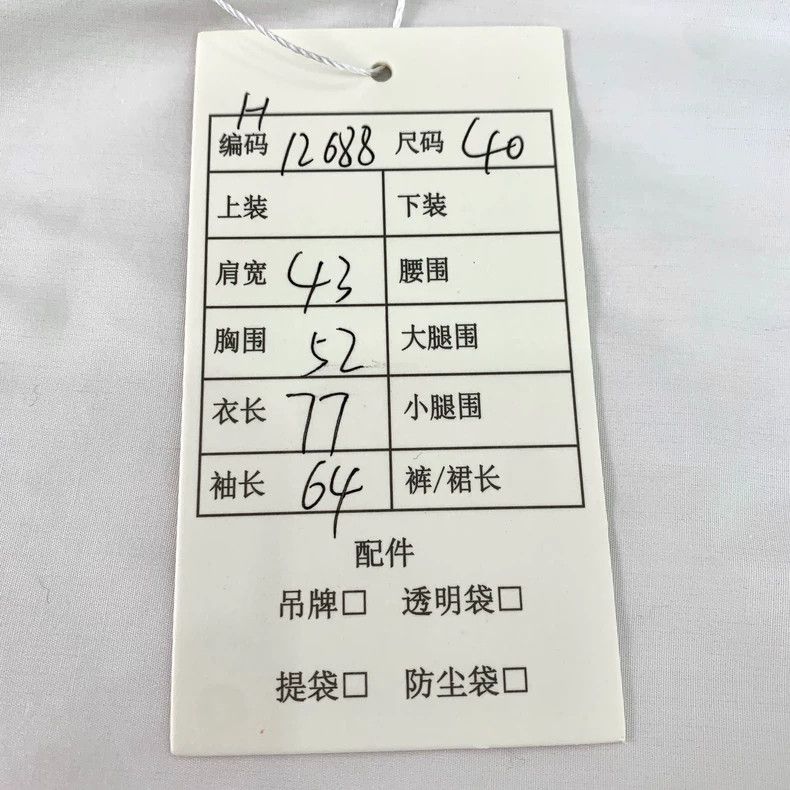 H
编码 12688 尺码 40
上装 下装
肩宽 43 腰围
胸围 52 大腿围
衣长 77 小腿围
袖长 64 裤/裙长
配件
吊牌□ 透明袋□
提袋□ 防尘袋□